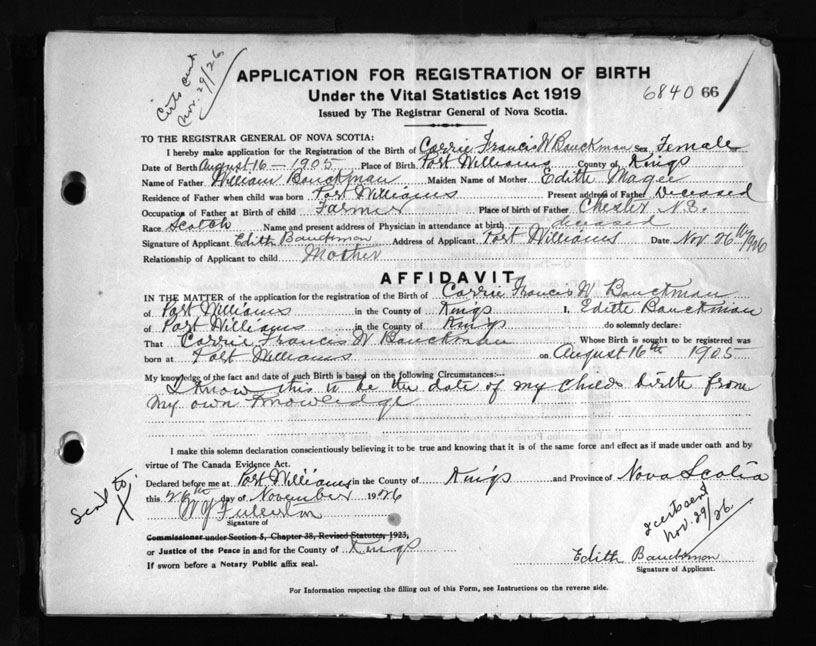 Certs sent
Nov. 29/26
APPLICATION FOR REGISTRATION OF BIRTH
Under the Vital Statistics Act 1919
Issued by The Registrar General of Nova Scotia.
6840 66
TO THE REGISTRAR GENERAL OF NOVA SCOTIA:
I hereby make application for the Registration of the Birth of Carrie Francis W Bauckman Sex Female
Date of Berth August 16 - 1905 Place of Birth Port Williams County of Kings
Name of Father William Bauckman Maiden Name of Mother Edith Magee
Residence of Father when child was born Port Williams Present address of Father Deceased
Occupation of Father at Birth of child Farmer Place of birth of Father Chester N.S.
Race Scotch Name and present address of Physician in attendance at birth deceased
Signature of Applicant Edith Bauckman Address of Applicant Port Williams Date Nov 26th/926
Relationship of Applicant to child Mother
AFFIDAVIT
IN THE MATTER of the application for the registration of the Birth of Carrie Francis W Bauckman
of Port Williams in the County of Kings I, Edith Bauckman
of Port Williams in the County of Kings do solemnly declare:
That Carrie Francis W Bauckman Whose Birth is sought to be registered was
born at Port Williams on August 16th 1905
My knowledge of the fact and date of such Birth is based on the following Circumstances:—
I know this to be the date of my childs birth from
my own knowledge
I make this solemn declaration conscientiously believing it to be true and knowing that it is of the same force and effect as if made under oath and by
virtue of The Canada Evidence Act.
Declared before me at Port Williams in the County of Kings and Province of Nova Scotia
this 26th day of November 1926
Fullerton
Signature of
Commissioner under Section 5, Chapter 38, Revised Statutes, 1923,
or Justice of the Peace in and for the County of Kings
If sworn before a Notary Public affix seal.
Sent to
X
2 certs sent
Nov. 29/26.
Edith Bauckman
Signature of Applicant.
For Information respecting the filling out of this Form, see Instructions on the reverse side.